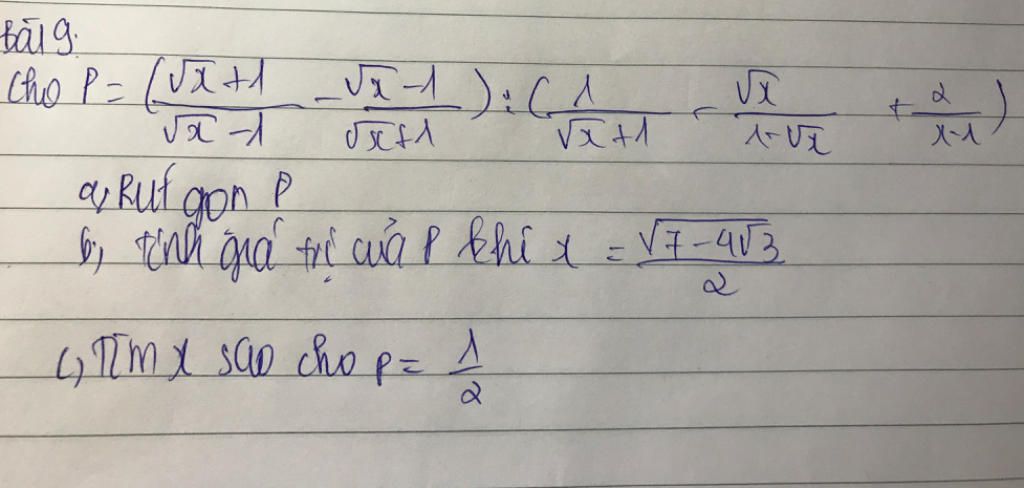 Bài 9.
Cho P = (√x+1/√x-1 - √x-1/√x+1) : (1/√x+1 - √x/1-√x + 2/x-1)
a, Rút gọn P
b, tính giá trị của P khi x = √7-4√3/2
c, Tìm x sao cho P = 1/2